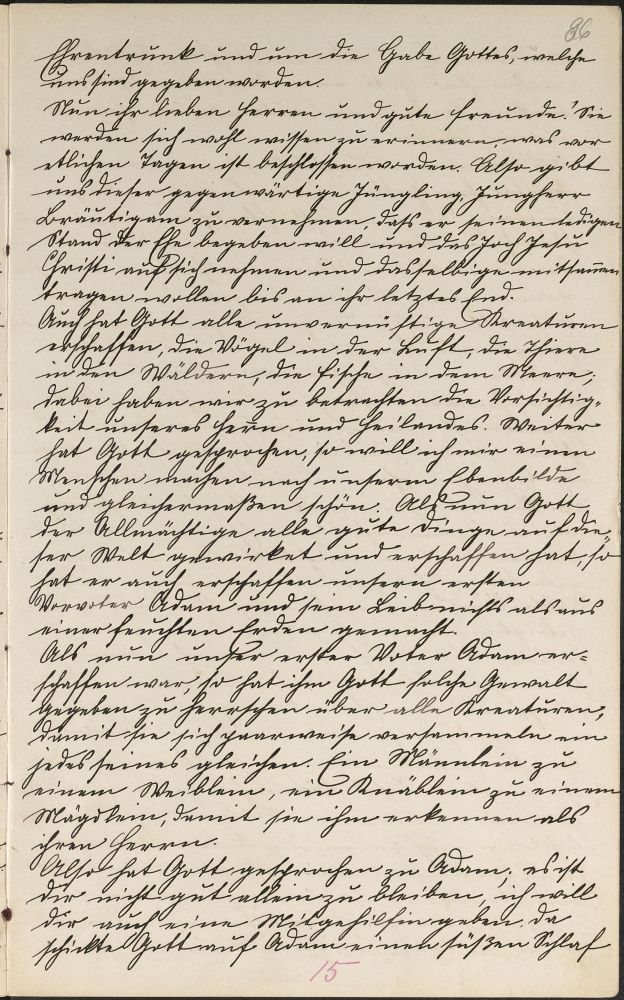 86
Ehrentrunk und um die Gabe Gottes, welche
uns sind gegeben worden.
Nun ihr lieben Herren und gute Freunde! Sie
werden sich wohl wissen zu erinnern, was vor
etlichen Tagen ist beschlossen worden. Also gibt
uns dieser gegenwärtige Jüngling, Jungherr
Bräutigam zu vernehmen, daß er seinen ledigen
Stand der Ehe begeben will und das Joch Jesu
Christi auf sich nehmen und dasselbige mitsam̄en
tragen wollen bis an ihr letztes End.
Auch hat Gott alle unvernünftige Kreaturen
erschaffen, die Vögel in der Luft, die Thiere
in den Wäldern, die Fische in dem Meere;
dabei haben wir zu betrachten die Vorsichtig-
keit unseres Herrn und Heilandes. Weiter
hat Gott gesprochen, so will ich mir einen
Menschen machen nach unserm Ebenbilde
und gleichermaßen schön. Als nun Gott
der Allmächtige alle gute Dinge auf die-
ser Welt gewirket und erschaffen hat, so
hat er auch erschaffen unsern ersten
Vorvater Adam und sein Leib nichts als aus
einer feuchten Erden gemacht.
Als nun unser erster Vater Adam er-
schaffen war, so hat ihm Gott solche Gewalt
gegeben zu herrschen über alle Kreaturen,
damit sie sich paarweise versammeln ein
jedes seines gleichen. Ein Männlein zu
einem Weiblein, ein Knäblein zu einem
Mägdlein, damit sie ihm erkennen als
ihren Herrn.
Also hat Gott gesprochen zu Adam; es ist
dir nicht gut allein zu bleiben, ich will
dir auch eine Mitgehilfin geben. Da
schickte Gott auf Adam einen süßen Schlaf
15